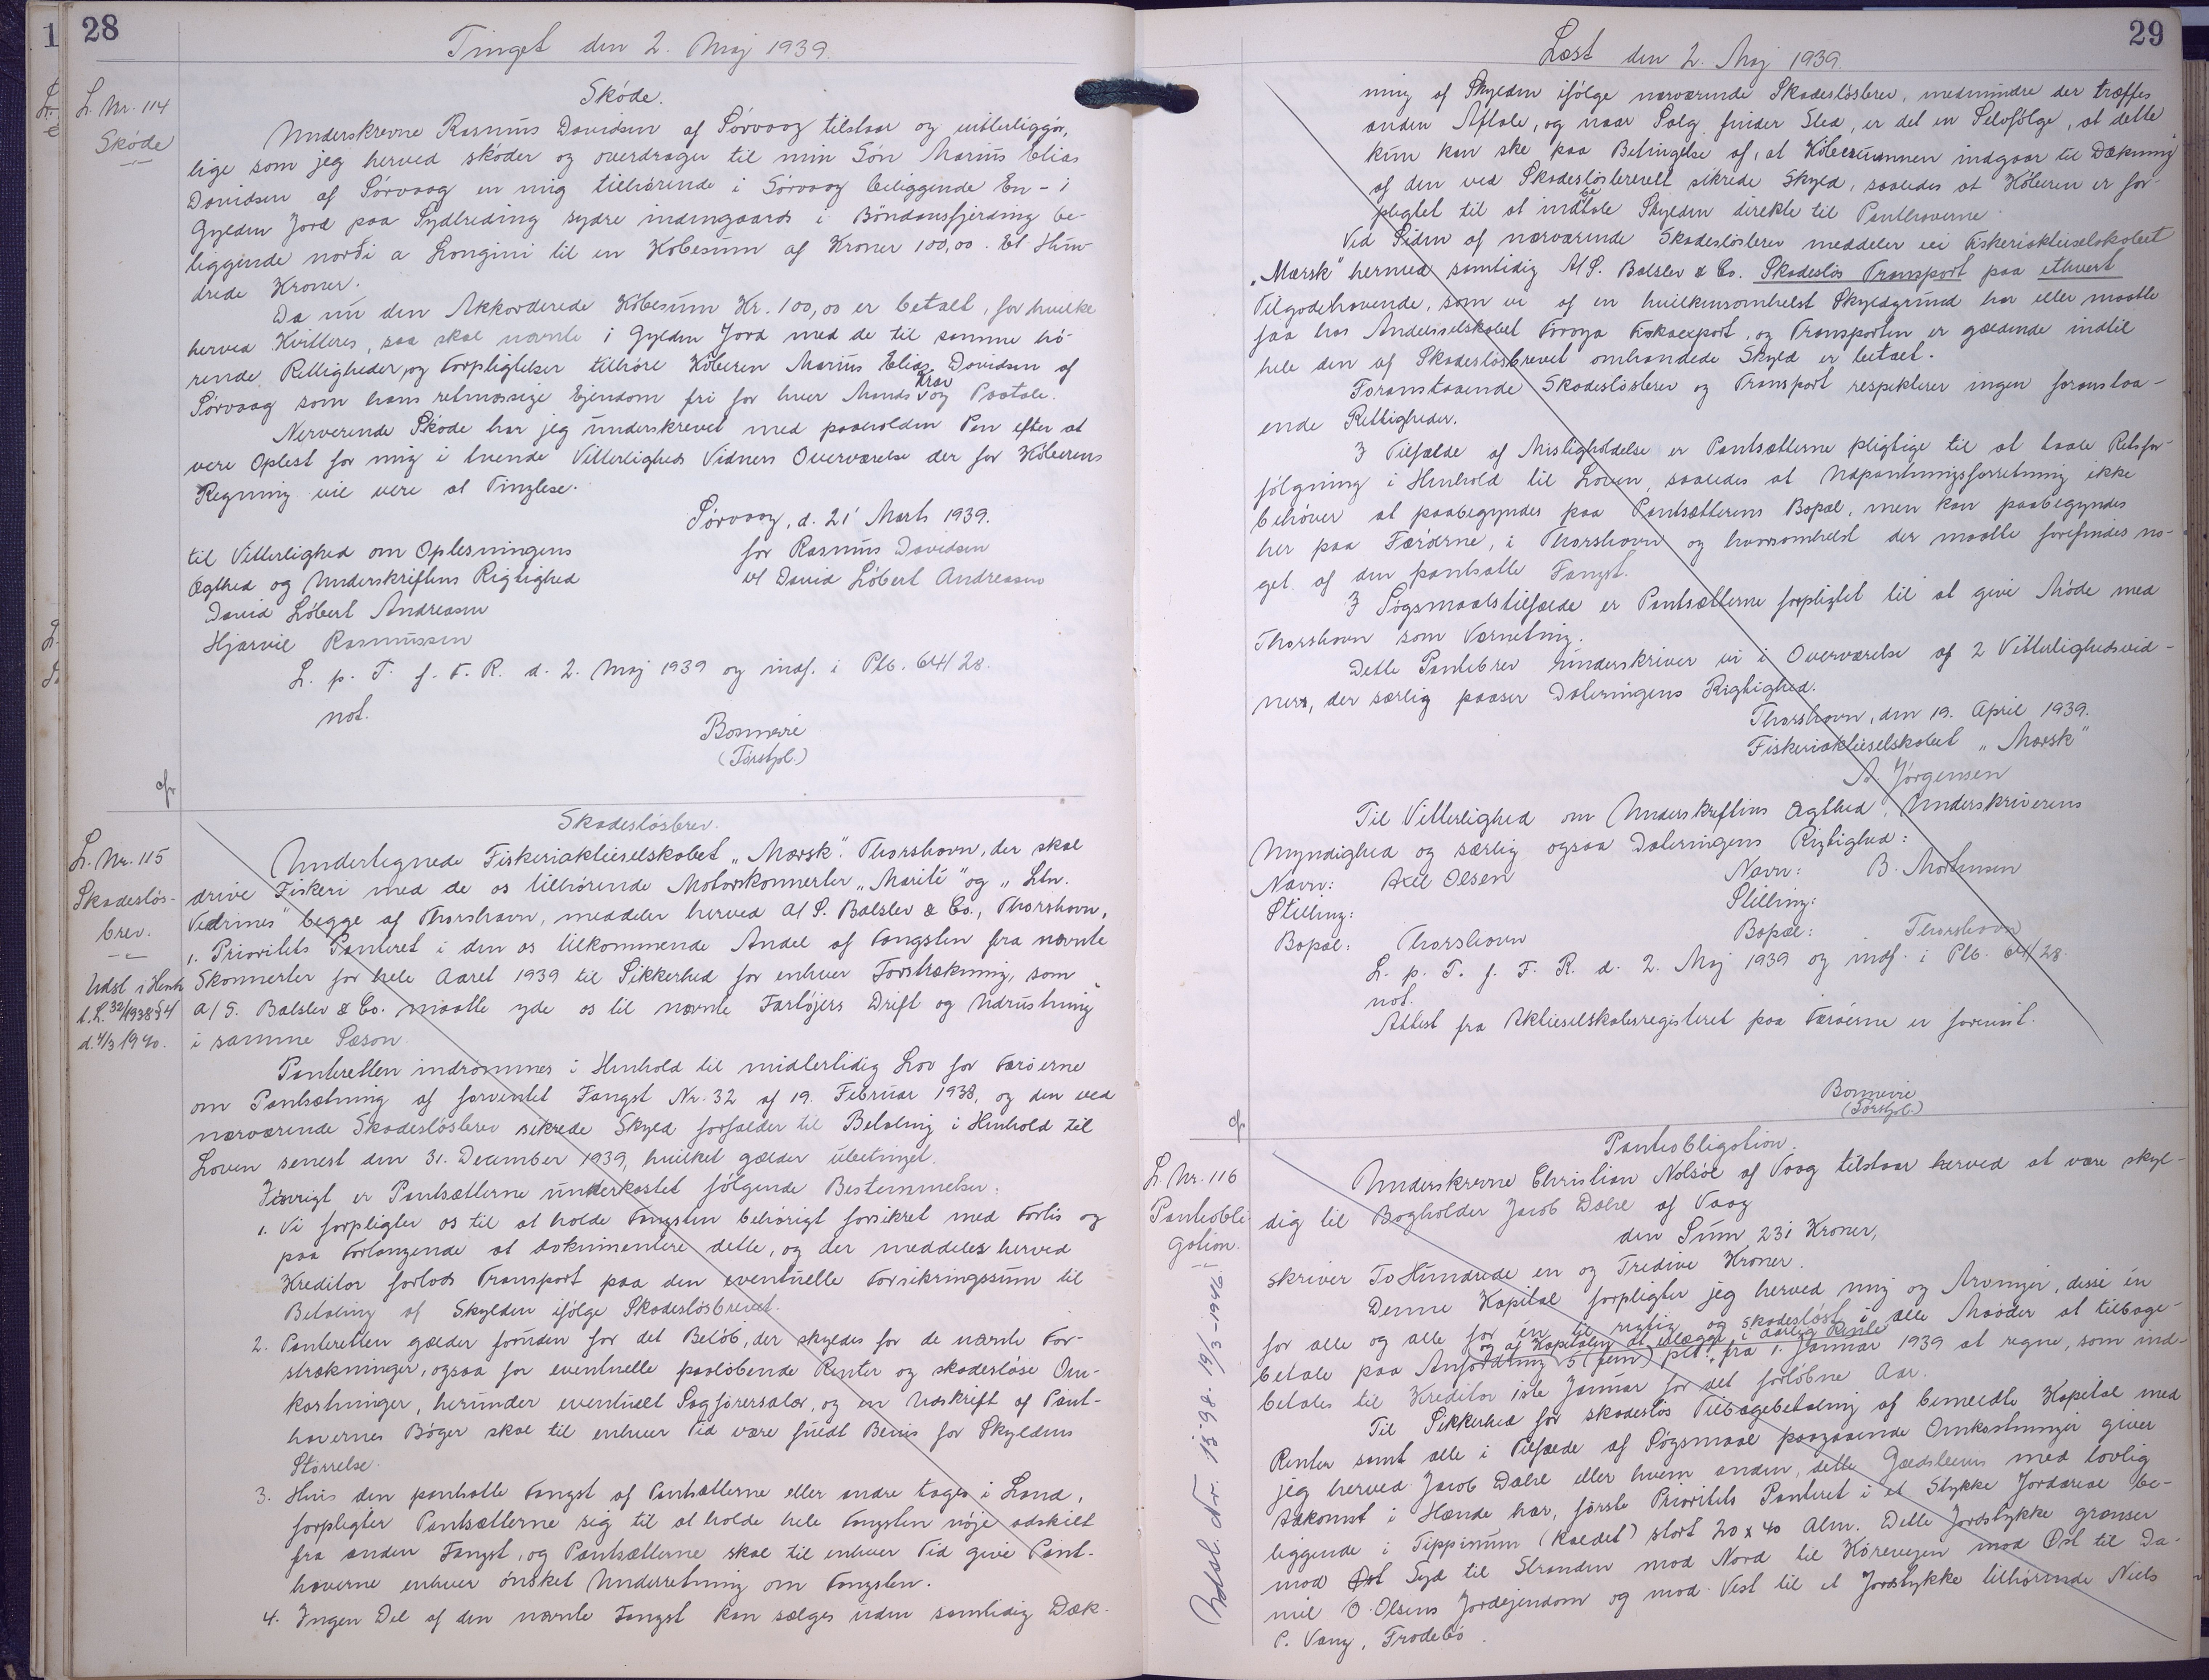 28
Tinget den 2. Maj 1939.
L. Nr. 114
Skóde
Skóde.
Underskrevne Rasmus Davidsen af Sórvaag tilstaar og vitterliggór,
lige som jeg herved skóder og overdrager til min Són Marius Elias
Davidsen af Sórvaag en mig tilhórende i Sórvaag beliggende En - 1
Gylden Jord paa Sydlreding sydre indengaards i Böndansfjerding be-
liggende norði a Longini til en Kóbesum af Kroner 100,00. Et Hun-
drede Kroner.
Da nu den Akkorderede Kóbesum Kr. 100,00 er betalt, for hvilke
herved Kvitteres, saa skal nævnte 1 Gylden Jord med de til samme hó-
rende Rettigheder og Forpligtelser tilhóre Kóberen Marius Elias Davidsen af
Sórvaag som hans retmæssige Ejendom fri for hver Mands Krav og Paatale.
Nerverende Skóde har jeg underskrevet med paaholden Pen efter at
vere Oplest for mig i tvende Vitterligheds Vidners Overværelse der for Kóberens
Regning vil vere at Tinglese.
Sórvaag, d. 21' Marts 1939.
til Vitterlighed om Oplesningens
for Rasmus Davidsen
Ægthed og Underskriftens Rigtighed
vl David Lóbert Andreasen
David Lóbert Andreasen
Hjarvil Rasmussen
L. p. T. f. F. R. d. 2. Maj 1939 og indf. i Ptb. 64/28.
not.
Bonnevie
(Tórsfjol.)
cfr
L. Nr. 115
Skadeslós-
brev.
Udsl i Henh
t. L. 32/1938 § 4
d. 4/3 1940.
Skadeslósbrev.
Undertegnede Fiskeriaktieselskabet „Mærsk". Thorshavn, der skal
drive Fiskeri med de os tilhórende Motorskonnerter „Marité" og „Ltn.
Vedrines" begge af Thorshavn, meddeler herved A/S. Balslev & Co., Thorshavn,
1. Prioritets Panteret i den os tilkommende Andel af Fangsten fra nævnte
Skonnerter for hele Aaret 1939 til Sikkerhed for enhver Forstrækning, som
A/S. Balslev & Co. maatte yde os til nævnte Fartójers Drift og Udrustning
i samme Sæson.
Panteretten indrómmes i Henhold til midlertidig Lov for Færóerne
om Pantsætning af forventet Fangst Nr. 32 af 19. Februar 1938, og den ved
nærværende Skadeslósbrev sikrede Skyld forfalder til Betaling i Henhold til
Loven senest den 31. December 1939, hvilket gælder ubetinget.
Ióvrigt er Pantsætterne underkastet fólgende Bestemmelser:
1. Vi forpligter os til at holde Fangsten behórigt forsikret mod Forlis og
paa Forlangende at dokumentere dette, og der meddeles herved
Kreditor forlods Transport paa den eventuelle Forsikringssum til
Betaling af Skylden ifólge Skadeslósbrevet.
2. Panteretten gælder foruden for det Belób, der skyldes for de nævnte For-
strækninger, ogsaa for eventuelle paalóbende Renter og skadeslóse Om-
kostninger, herunder eventuelt Sagfórersalær, og en Udskrift af Pant-
havernes Bóger skal til enhver Tid være fuldt Bevis for Skyldens
Stórrelse.
3. Hvis den pantsatte Fangst af Pantsætterne eller andre tages i Land,
forpligter Pantsætterne sig til at holde hele Fangsten nóje adskilt
fra anden Fangst, og Pantsætterne skal til enhver Tid give Pant-
haverne enhver ónsket Underretning om Fangsten.
4. Ingen Del af den nævnte Fangst kan sælges uden samtidig Dæk-
29
Læst den 2. Maj 1939.
ning af Skylden ifólge nærværende Skadeslósbrev, medmindre der træffes
anden Aftale, og naar Salg finder Sted, er det en Selvfólge, at dette
kun kan ske paa Betingelse af, at Kóbesummen indgaar til Dækning
af den ved Skadeslósbrevet sikrede Skyld, saaledes at Kóberen er for-
pligtet til at indbetale Skylden direkte til Panthaverne.
Ved Siden af nærværende Skadeslósbrev meddeler vi Fiskeriaktieselskabet
„Mærsk" hermed samtidig A/S. Balslev & Co. Skadeslós Transport paa ethvert
Tilgodehavende, som vi af en hvilkensomhelst Skyldgrund har eller maatte
faa hos Andelsselskabet Fóroya Fiskaexport, og Transporten er gældende indtil
hele den af Skadeslósbrevet omhandlede Skyld er betalt.
Foranstaaende Skadeslósbrev og Transport respekterer ingen foranstaa-
ende Rettigheder.
I Tilfælde af Misligholdelse er Pantsætterne pligtige til at taale Retsfor-
fólgning i Henhold til Loven, saaledes at Udpantningsforretning ikke
behóver at paabegyndes paa Pantsætterens Bopæl, men kan paabegyndes
her paa Færóerne, i Thorshavn og hvorsomhelst der maatte forefindes no-
get af den pantsatte Fangst.
I Sógsmaalstilfælde er Pantsætterne forpligtet til at give Móde med
Thorshavn som Værneting.
Dette Pantebrev underskriver vi i Overværelse af 2 Vitterlighedsvid-
ner, der særlig paaser Dateringens Rigtighed.
Thorshavn, den 19. April 1939.
Fiskeriaktieselskabet „Mærsk"
A. Jórgensen
Til Vitterlighed om Underskriftens Ægthed, Underskriverens
Myndighed og særlig ogsaa Dateringens Rigtighed:
Navn: Axel Olsen
Navn: B. Mortensen
Stilling:
Stilling:
Bopæl: Thorshavn
Bopæl: Thorshavn
L. p. T. f. F. R. d. 2. Maj 1939 og indf. i Ptb. 64/28.
not.
Attest fra Aktieselskabsregisteret paa Færóerne er forevist.
Bonnevie
(Tórsfjol.)
cfr
L. Nr. 116
Panteobli-
gation.
Udsl. Nr. 1598. 19/3-1946.
Panteobligation.
Underskrevne Christian Nolsóe af Vaag tilstaar herved at være skyl-
dig til Bogholder Jacob Dahl af Vaag
den Sum 231 Kroner,
skriver To Hundrede en og Tredive Kroner.
Denne Kapital forpligter jeg herved mig og Arvinger, disse én
for alle og alle for én til rigtig og skadeslóst i alle Maader at tilbage-
og af Kapitalen at erlægge i aarlig Rente
betale paa Anfordring 5 (fem) pct. fra 1. Januar 1939 at regne, som ind-
betales til Kreditor 1ste Januar for det forlóbne Aar.
Til Sikkerhed for skadeslós Tilbagebetaling af bemeldte Kapital med
Renter samt alle i Tilfælde af Sógsmaal paagaaende Omkostninger giver
jeg herved Jacob Dahl eller hvem anden, dette Gældsbevis med lovlig
Adkomst i Hænde har, fórste Prioritets Panteret i et Stykke Jordareal be-
liggende i Tippinum (kaldet) stort 20 x 40 Alm. Dette Jordstykke grænser
mod Syd til Stranden mod Nord til Kórevejen mod Óst til Da-
niel O. Olsens Jordejendom og mod Vest til et Jordstykke tilhórende Niels
P. Vang, Frodebó.